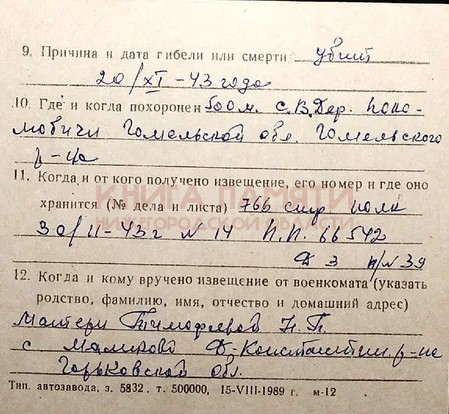 9. Причина и дата гибели или смерти убит
20/XI-43 года
10. Где и когда похоронен 500 м. С.В. Дер.
мовичи Гомельской обл. Гомельского
р-на
11. Когда и от кого получено извещение, его номер и где оно
хранится (№ дела и листа) 766 стр полк
30/11-43г N 14 П.П. 66542
Д 3 п/N 39
12. Когда и кому вручено извещение от военкомата (указать
родство, фамилию, имя, отчество и домашний адрес)
Матери Тимофеевой Н.П.
с Д-Константин. р-на
Горьковской обл.
Тип. автозавода, з. 5832, т. 500000, 15-VIII-1989 г. м-12
КНИГА ПАМЯТИ
НИЖЕГОРОДСКОЙ ОБЛАСТИ